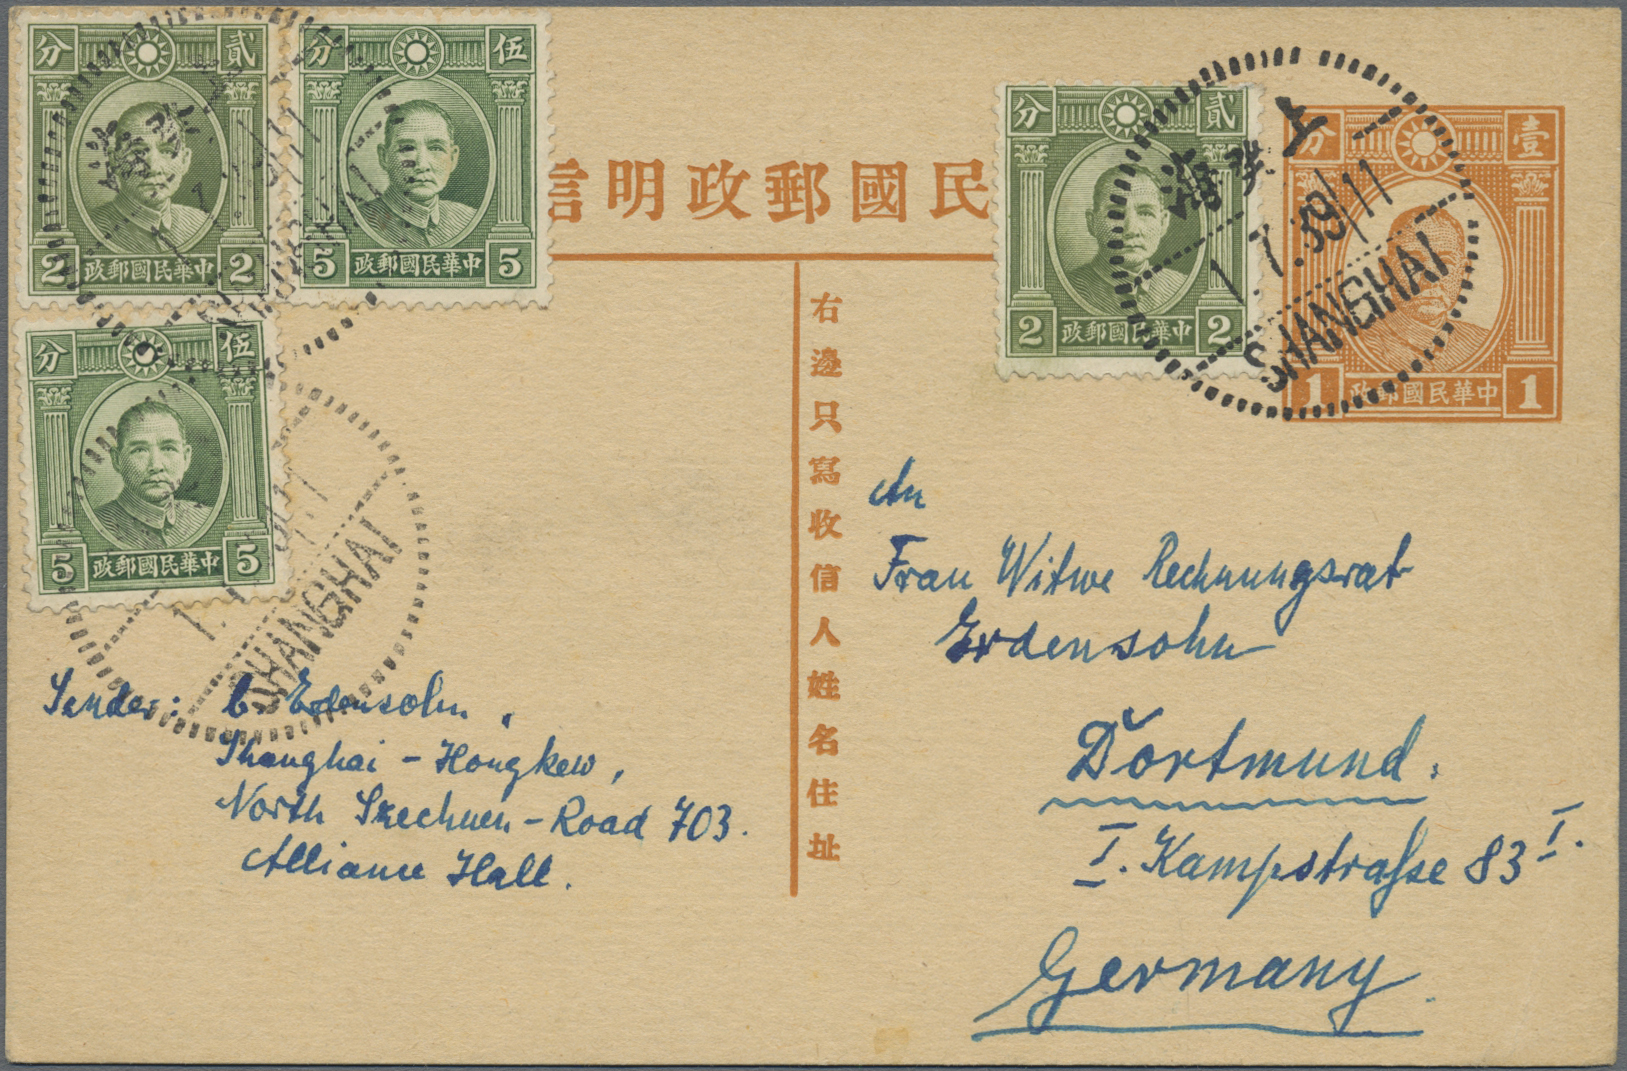 分 貳
2 中華民國郵政 2
分 伍
5 中華民國郵政 5
分 伍
5 中華民國郵政 5
分 貳
2 中華民國郵政 2
分 壹
1 中華民國郵政 1
民國郵政明信
右邊只寫收信人姓名住址
上海
1.7.39/11
SHANGHAI
SHANGHAI
SHANGHAI
An
Frau Witwe Rechnungsrat
Erdensohn
Dortmund.
I. Kampstraße 83 I.
Germany.
Sender: C. Erdensohn.
Shanghai - Hongkew,
North Szechuen - Road 703.
Alliance Hall.